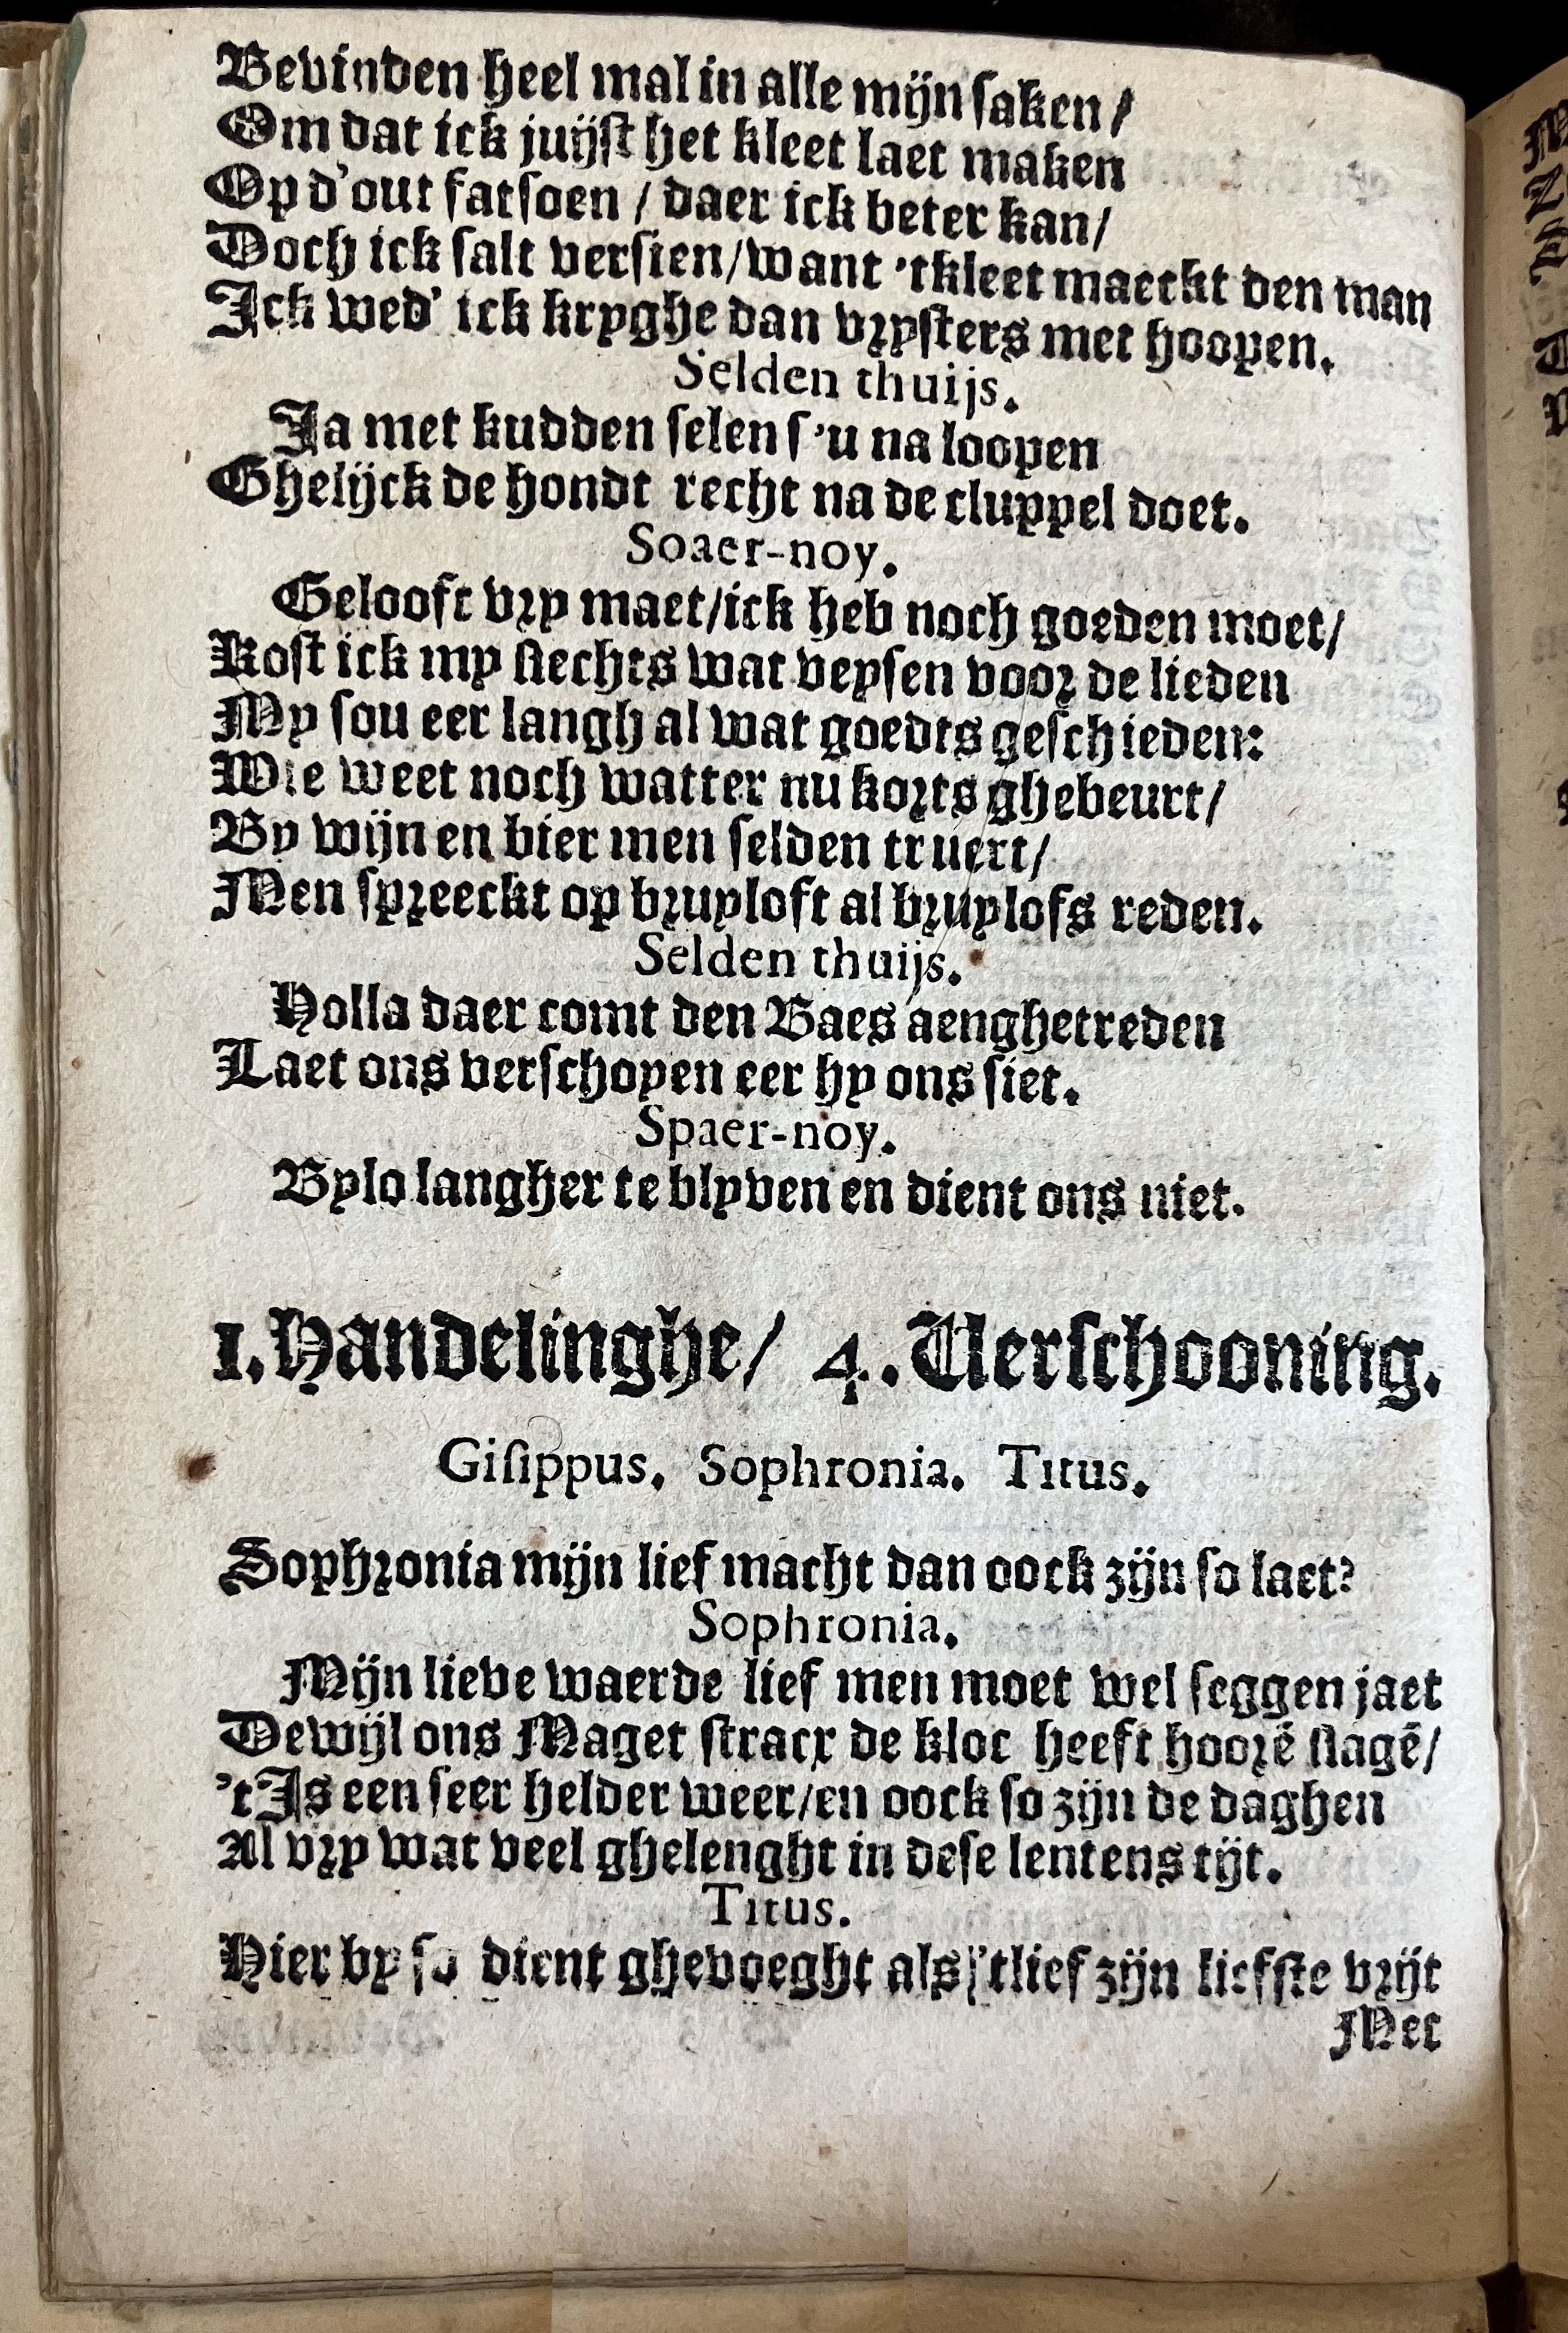 Bevinden heel mal in alle mijn saken /
Om dat ick juijst het kleet laet maken
Op d'out fatsoen / daer ick beter kan /
Doch ick salt versien / want 'tkleet maeckt den man
Ick wed' ick kryghe dan vrysters met hoopen.
Selden thuijs.
Ja met kudden selen s'u na loopen
Ghelijck de hondt recht na de cluppel doet.
Soaer-noy.
Gelooft vry maet / ick heb noch goeden moet /
Kost ick my slechts wat veysen voor de lieden
My sou eer langh al wat goedts geschieden:
Wie weet noch watter nu korts ghebeurt /
By wijn en bier men selden truert /
Men spreeckt op bruyloft al bruylofs reden.
Selden thuijs.
Holla daer comt den Baes aenghetreden
Laet ons verschoyen eer hy ons siet.
Spaer-noy.
Bylo langher te blyven en dient ons niet.
1. Handelinghe / 4. Verschooning.
Gisippus. Sophronia. Titus.
Sophronia mijn lief macht dan oock zijn so laet?
Sophronia.
Mijn lieve waerde lief men moet wel seggen jaet
Dewijl ons Maget stracx de kloc heeft hoorē slagē /
't Is een seer helder weer / en oock so zijn de daghen
Al vry wat veel ghelenght in dese lentens tijt.
Titus.
Hier by so dient ghevoeght als 'tlief zijn liefste vrijt
Met